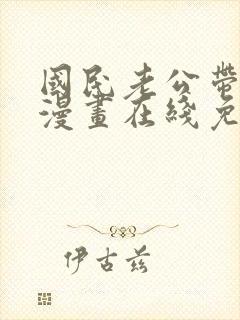 國民老公帶
漫畫在綫免
伊古茲